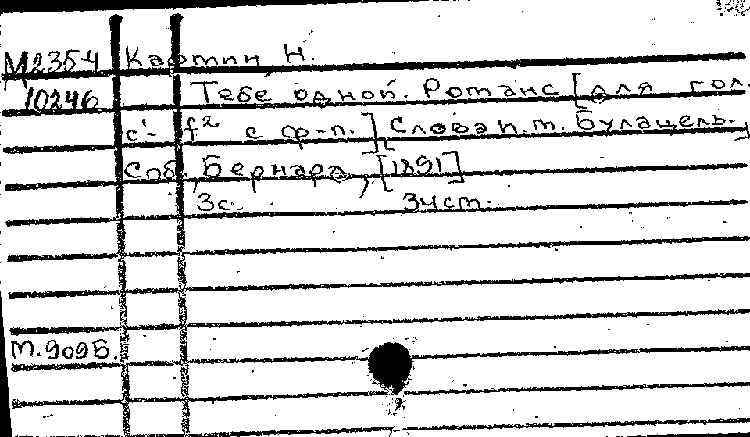 М235Ч Картин, Н.
10246 Тебе одной. Романс [для гол.
c¹- f² с ф-п.] [Слова п.т. Булацель.]
Спб, Бернард, [1891]
3с. 34ст.
М.9095.